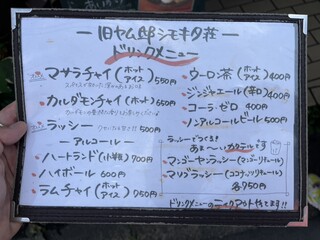 旧ヤム邸シモキタ荘
ドリンクメニュー
マサラチャイ（ホット アイス）550円
カルダモンチャイ（ホット）650円
ラッシー 500円
ーアルコールー
ハートランド（小瓶）700円
ハイボール 600円
ラムチャイ（ホット アイス）750円
ウーロン茶（ホット アイス）400円
ジンジャエール（辛口）400円
コーラ・ゼロ 400円
ノンアルコールビール 500円
ラッシーでつくる！
あま〜いカクテルです
マンゴーヤラッシー（マンゴーリキュール）
マリブラッシー（ココナッツリキュール）
各750円
ドリンクメニューのテイクアウト可きます!!